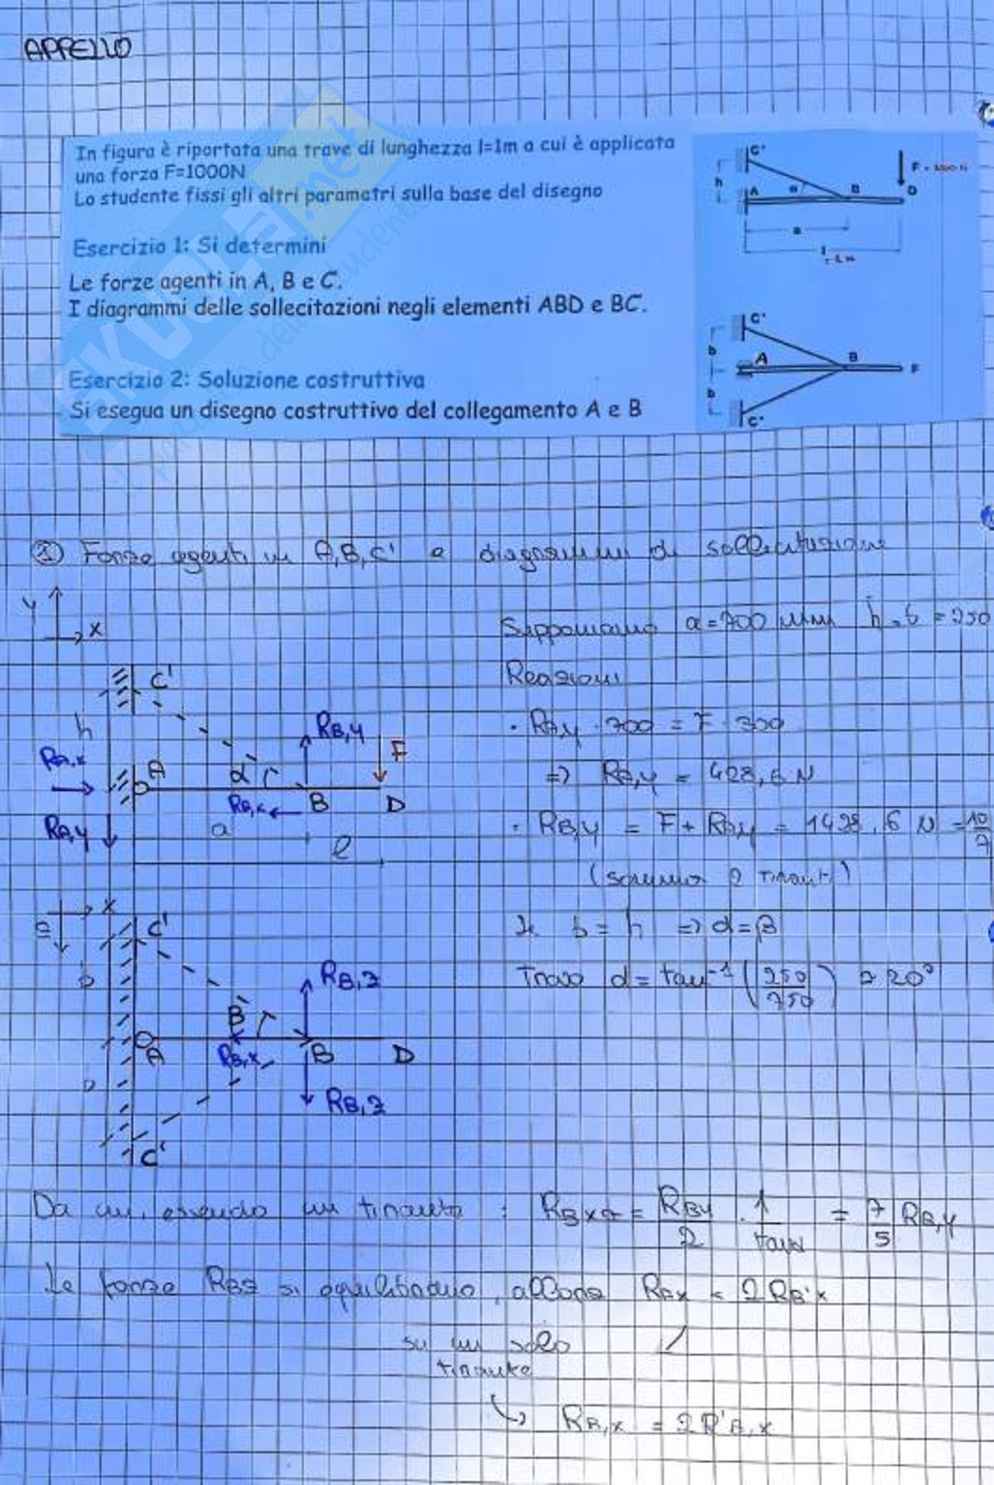 APPELLO
In figura è riportata una trave di lunghezza l=1m a cui è applicata
una forza F=1000N
Lo studente fissi gli altri parametri sulla base del disegno
Esercizio 1: Si determini
Le forze agenti in A, B e C'.
I diagrammi delle sollecitazioni negli elementi ABD e BC'.
Esercizio 2: Soluzione costruttiva
Si esegua un disegno costruttivo del collegamento A e B
C'
h
A
α
B
D
a
l
C'
b
A
B
F
b
C'
① Forze agenti in A,B,C' e diagrammi di sollecitazione
Y
X
Supponiamo a=700 mm h=b=250
Reazioni
C'
h
RA,x
A
α
RB,Y
F
RB,x
B
D
RA,Y
a
l
· RA,y · 700 = F · 300
=> RA,y = 428,6 N
· RB,Y = F + RA,y = 1428,6 N = 10/7
(saranno 2 tiranti)
b = h => α=β
Trovo α = tan⁻¹ (250/750) ≅ 20°
X
C'
b
RB,z
B
A
RB,x
B
D
b
RB,z
C'
Da cui, essendo un tirante : = RBY/2 · 1/tanα = 7/5 RB,Y
Le forze RBz si equilibrano, allora RBx = 2RB'x
su un solo
tirante
↳ RB,x = 2R'B,x